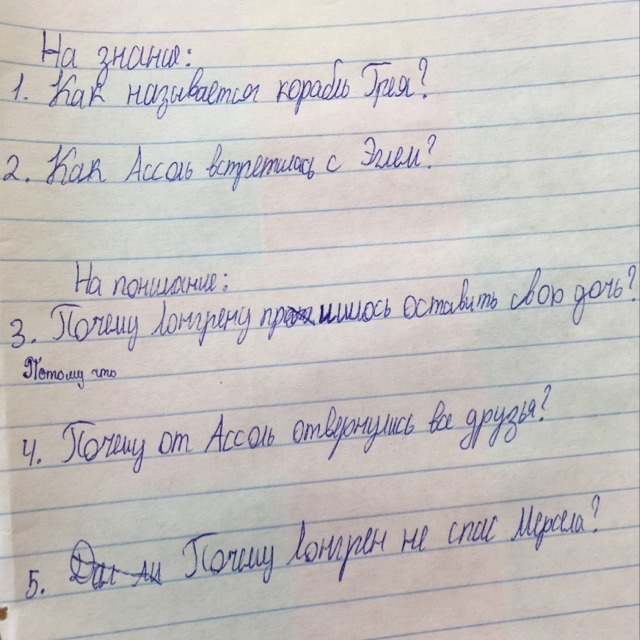 На знание:
1. Как называется корабль Грея?
2. Как Ассоль встретилась с Эглем?
На понимание:
3. Почему Лонгрену пришлось оставить свою дочь?
Потому что
4. Почему от Ассоль отвернулись все друзья?
5. Почему Лонгрен не спас